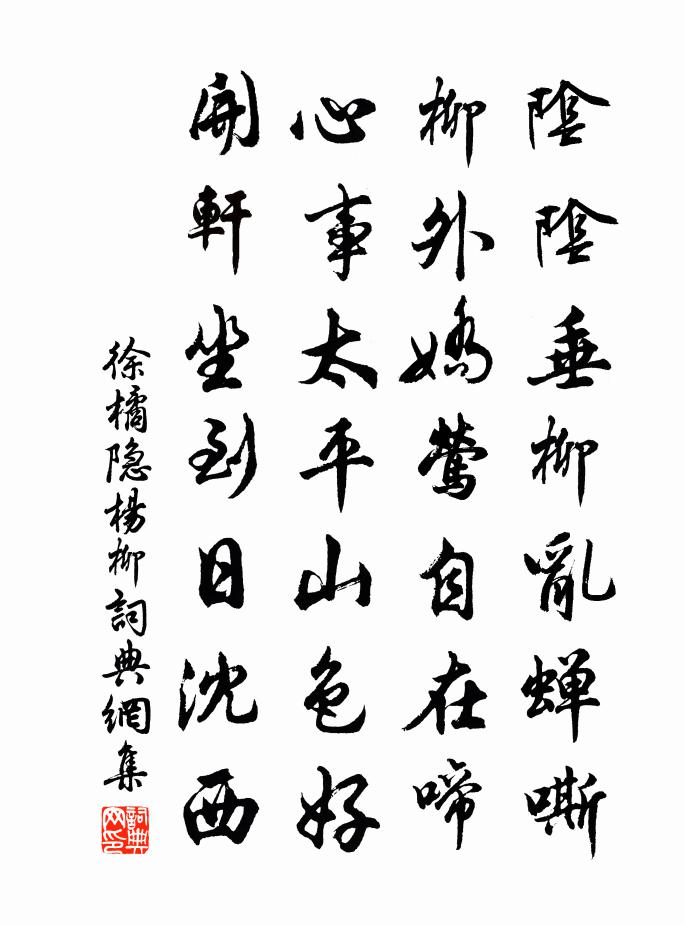 陰陰垂柳亂蝉嘶
柳外嬌鶯自在啼
心事太平山色好
開軒坐到日沈西
徐橘隐楊柳詞典網集
詞典网印